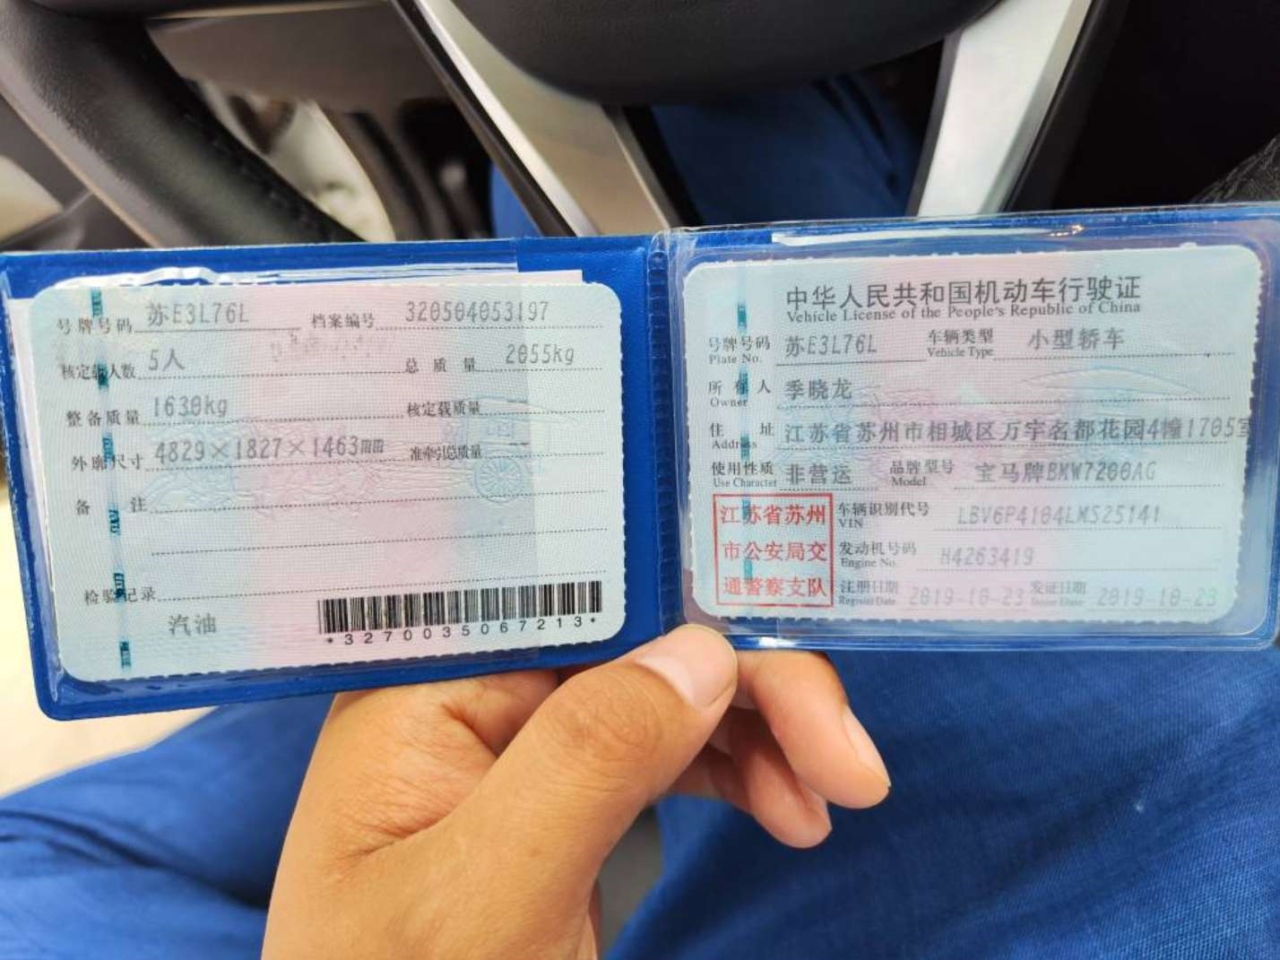 号牌号码 苏E3L76L 档案编号 320504053197
核定载人数 5人 总质量 2055kg
整备质量 1630kg 核定载质量
外廓尺寸 4829×1827×1463mm 准牵引总质量
备注
检验记录
汽油
*3270035067213*
中华人民共和国机动车行驶证
Vehicle License of the People's Republic of China
号牌号码 苏E3L76L 车辆类型 小型轿车
Plate No. Vehicle Type
所有人 季晓龙
Owner
住址 江苏省苏州市相城区万宇名都花园4幢1705室
Address
使用性质 非营运 品牌型号 宝马牌BMW7200AG
Use Character Model
江苏省苏州
市公安局交
通警察支队
车辆识别代号 LBV6P4104LMS25141
VIN
发动机号码 H4263419
Engine No.
注册日期 2019-10-23 发证日期 2019-10-23
Register Date Issue Date